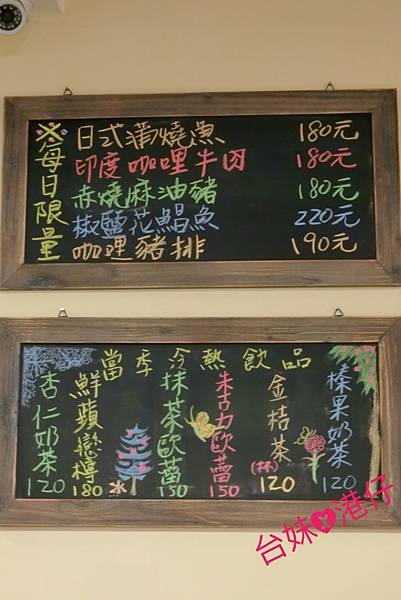 ※每日限量
日式蒲燒魚 180元
印度咖哩牛肉 180元
赤燒麻油豬 180元
椒鹽花鯧魚 220元
咖哩豬排 190元
當季冷熱飲品
榛果奶茶 120
金桔茶 (杯) 120
朱古力歐蕾 150
抹茶歐蕾 150
鮮蘋戀檸 180 冰
杏仁奶茶 120
台妹 港仔